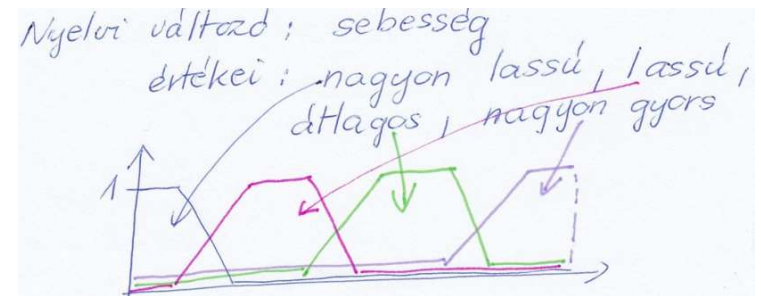 Nyelvi változó : sebesség
értékei : nagyon lassú, lassú,
átlagos, nagyon gyors
1